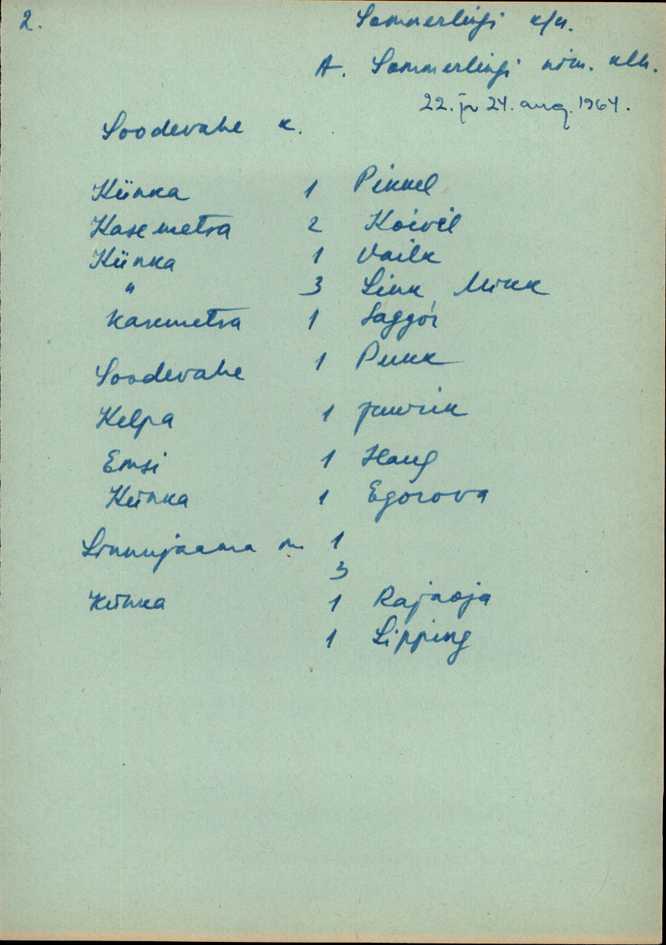 2.
Sommerlingi k/n.
A. Sommerlingi nim. klh.
22. ja 24. aug. 1964.
Soodevahe k.
Künka 1 Pikkel
Kasemetsa 2 Koivel
Künka 1 Vailk
" 3 Link, Mikk
Kasemetsa 1 Saggor
Soodevahe 1 Pukk
Kelpa 1
Emsi 1 Haug
Künka 1 Egorova
Linnujaama m. 1
3
Künka 1 Rajaoja
1 Lipping